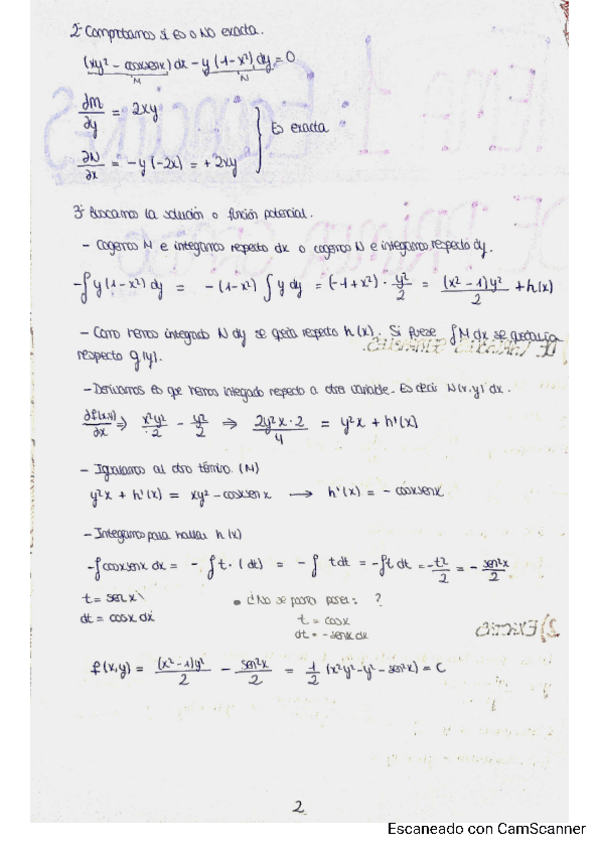 2- Comprobamos si es o no exacta.
(xy² - cosxsenx) dx - y (1-x²) dy = 0
M N
∂M/∂y = 2xy
Es exacta
∂N/∂x = -y (-2x) = + 2xy
3- Buscamos la solución o función potencial.
- Cogemos M e integramos respecto dx o cogemos N e integramos respecto dy.
-∫y(1-x²) dy = -(1-x²) ∫ y dy = (-1+x²) · y²/2 = (x²-1)y²/2 + h(x)
- Como hemos integrado N dy se queda respecto h(x). Si fuese ∫M dx se quedaría
respecto g(y).
- Derivamos lo que hemos integrado respecto a otra variable. Es decir N(x,y) dx.
∂f(x,y)/∂x ⇒ x²y²/2 - y²/2 ⇒ 2y²x·2/4 = y²x + h'(x)
- Igualamos al otro término. (M)
y²x + h'(x) = xy² - cosxsenx → h'(x) = - cosxsenx
- Integramos para hallar h(x)
-∫cosxsenx dx = - ∫t · (dt) = - ∫ t dt = -∫t dt = -t²/2 = - sen²x/2
t = senx
dt = cosx dx
• ¿No se podría poner: ?
t = cosx
dt = -senx dx
f(x,y) = (x²-1)y²/2 - sen²x/2 = 1/2 (x²y²-y²-sen²x) = C
2
Escaneado con CamScanner